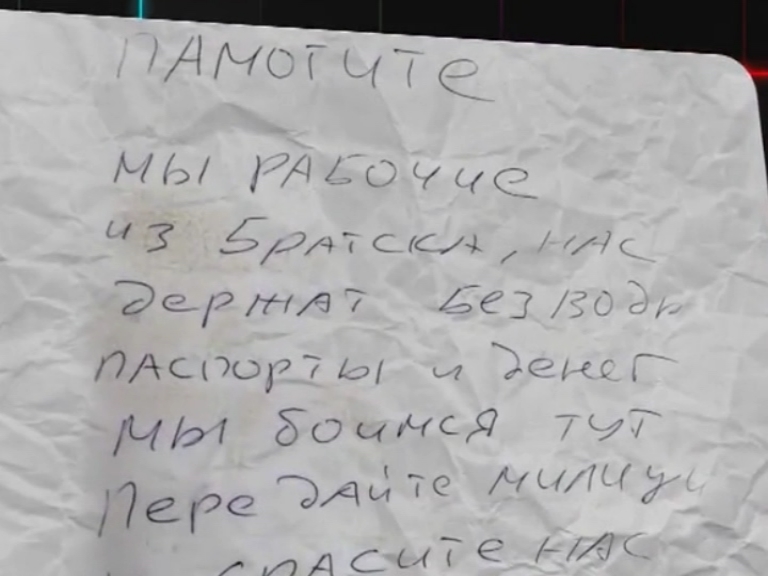 ПАМОГИТЕ
МЫ РАБОЧИЕ
ИЗ БРАТСКА, НАС
ДЕРЖАТ БЕЗ ВОДЫ
ПАСПОРТЫ И ДЕНЕГ
МЫ БОИМСЯ ТУТ
ПЕРЕДАЙТЕ МИЛИЦИИ
СПАСИТЕ НАС